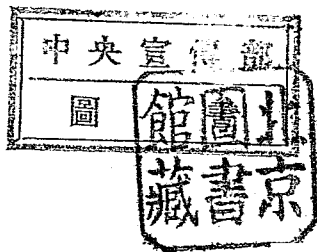 中央宣傳部
圖
北京
圖書
館藏